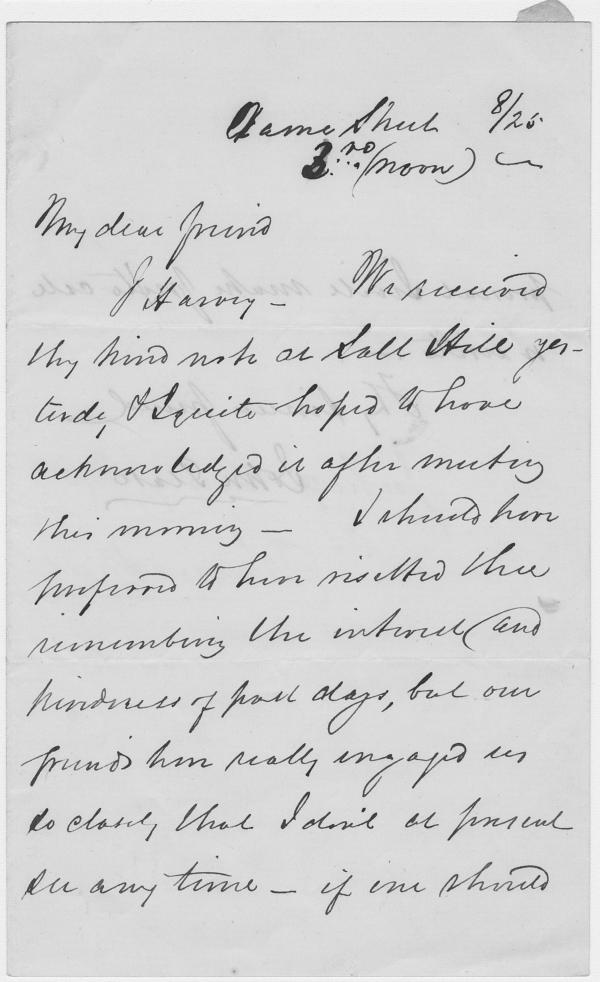 Dame Street 8/25
3rd (noon)
My dear friend
J Harvey — We received
thy kind note at Salt Hill yes-
terdy, & I quite hoped to have
acknowledged it after meeting
this morning — I should have
preferred to have visitted thee
remembering the interest (and
kindness of past days, but our
friends have really engaged us
so closely that I don't at present
see any time — if one should